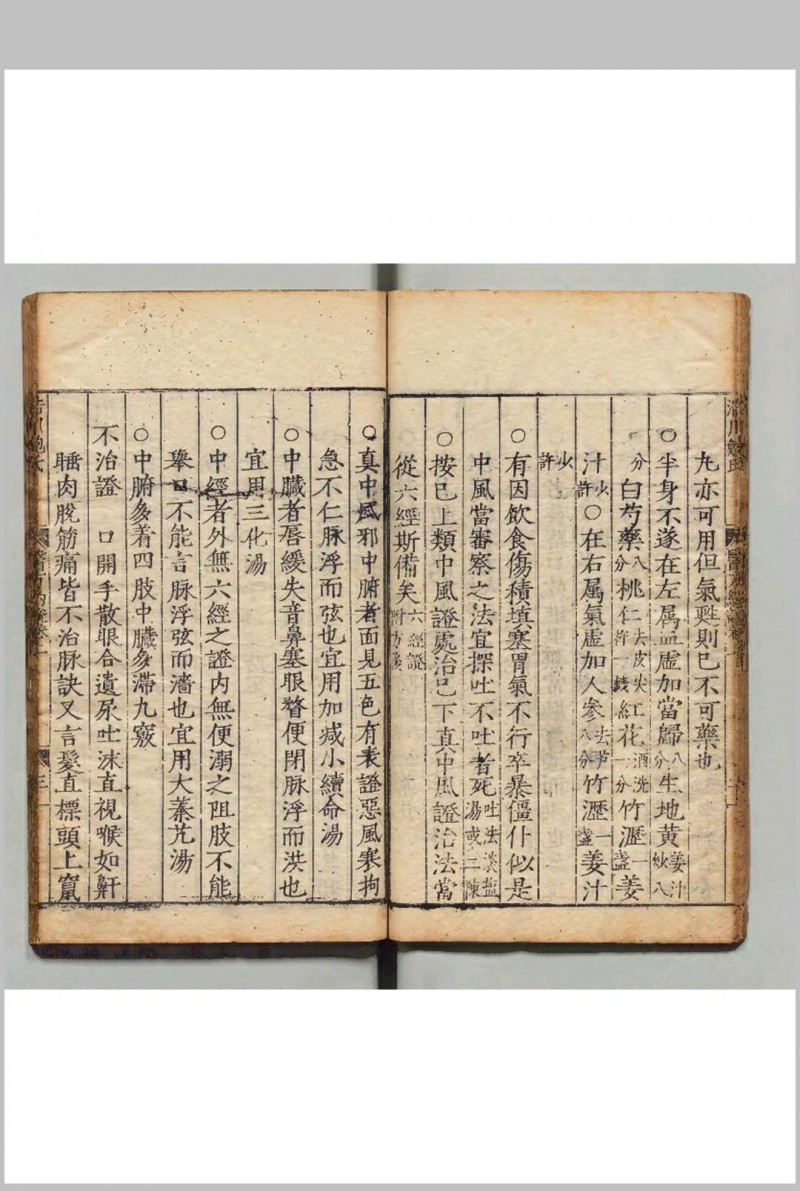 丸亦可用但氣甦則已不可藥也
○半身不遂在左属血虛加當歸八分生地黄姜汁炒八
分白芍藥八分桃仁去皮尖許一錢紅花酒洗一分竹瀝一盞姜
汁少許○在右属氣虛加人參去芦八分竹瀝一盞姜汁
少許
○有因飲食傷積填塞胃氣不行卒暴僵仆似是
中風當審察之法宜探吐不吐者死吐法淡塩湯或二陳
○按已上類中風證處治已下真中風證治法當
從六經斯備矣六經證附方後
○真中風邪中腑者面見五色有表證惡風寒拘
急不仁脉浮而弦也宜用加减小續命湯
○中臓者唇緩失音鼻塞眼瞀便閉脉浮而洪也
宜用三化湯
○中經者外無六經之證内無便溺之阻肢不能
舉口不能言脉浮弦而濇也宜用大蓁艽湯
○中腑多着四肢中臓多滞九竅
不治證 口開手散眼合遺尿吐沫直視喉如鼾
睡肉脫筋痛皆不治脉訣又言髮直摇頭上竄